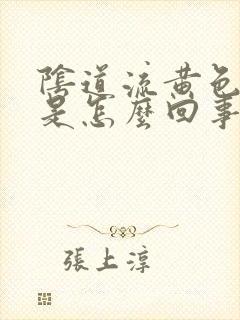 陰道流黃色
是怎麼回事
張上淳